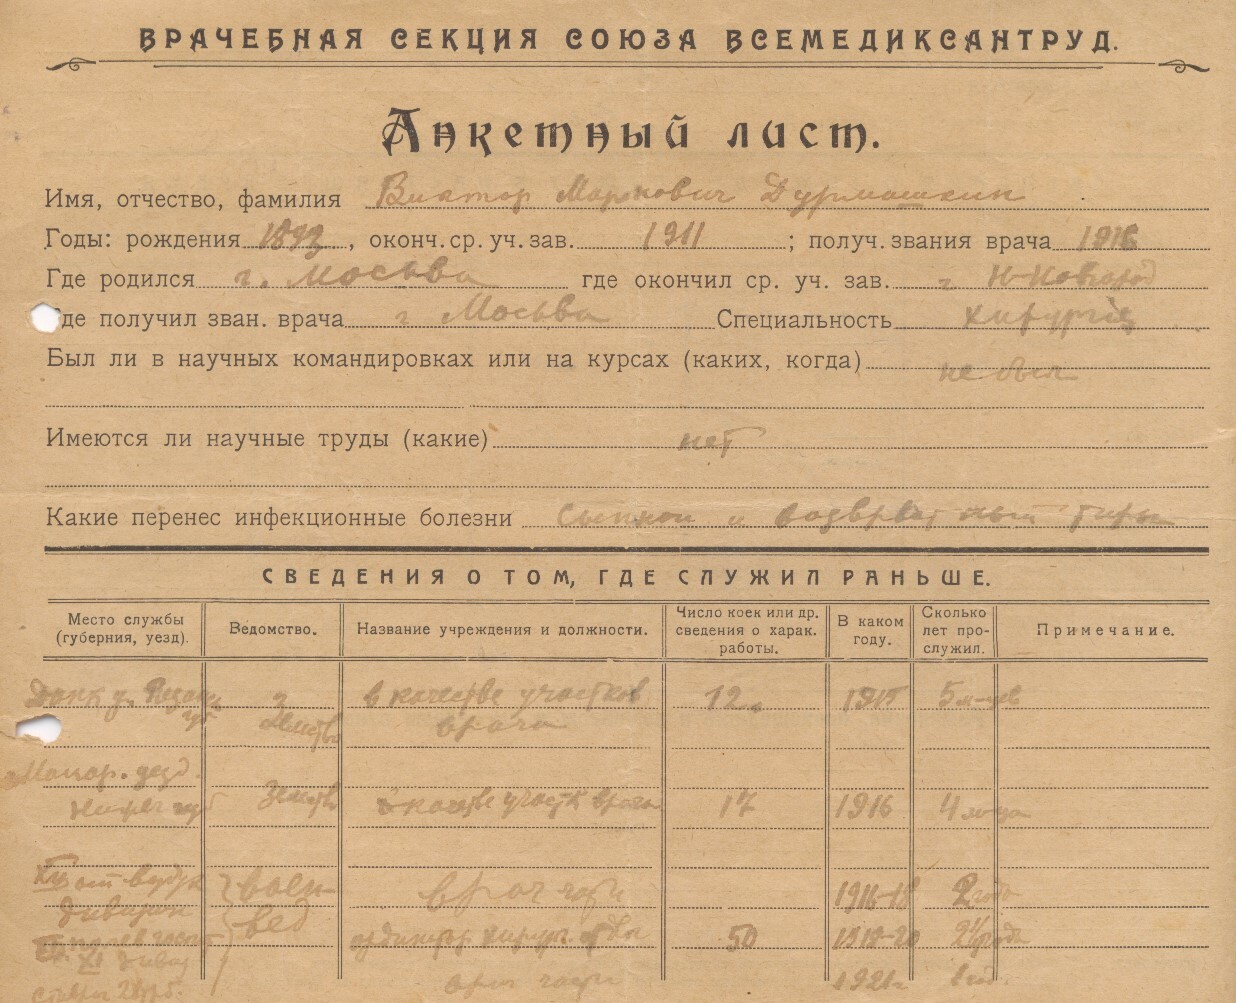 ВРАЧЕБНАЯ СЕКЦИЯ СОЮЗА ВСЕМЕДИКСАНТРУД.
Анкетный лист.
Имя, отчество, фамилия Виктор Маркович Дурмашкин
Годы: рождения 1893, оконч. ср. уч. зав. 1911; получ. звания врача 1916
Где родился г. Москва где окончил ср. уч. зав. г Н-Новгород
де получил зван. врача г Москва Специальность хирургия
Был ли в научных командировках или на курсах (каких, когда) не был
Имеются ли научные труды (какие) нет
Какие перенес инфекционные болезни Сыпной и возвратный тифы
СВЕДЕНИЯ О ТОМ, ГДЕ СЛУЖИЛ РАНЬШЕ.
Место службы (губерния, уезд). Ведомство. Название учреждения и должности. Число коек или др. сведения о харак. работы. В каком году. Сколько лет прослужил. Примечание.
Данк у. Рязан в качестве участков 12 1915 5 м-цев
губ земство врача
Макар. уезд.
губ Земство в качестве участк врача 17 1916 4 м-ца
воен- врач части 1916-18 2 года
дивизион вед
госп ординатор хирург. отд 50 1918-20 2½ года
XI врач части 1921г 1 год